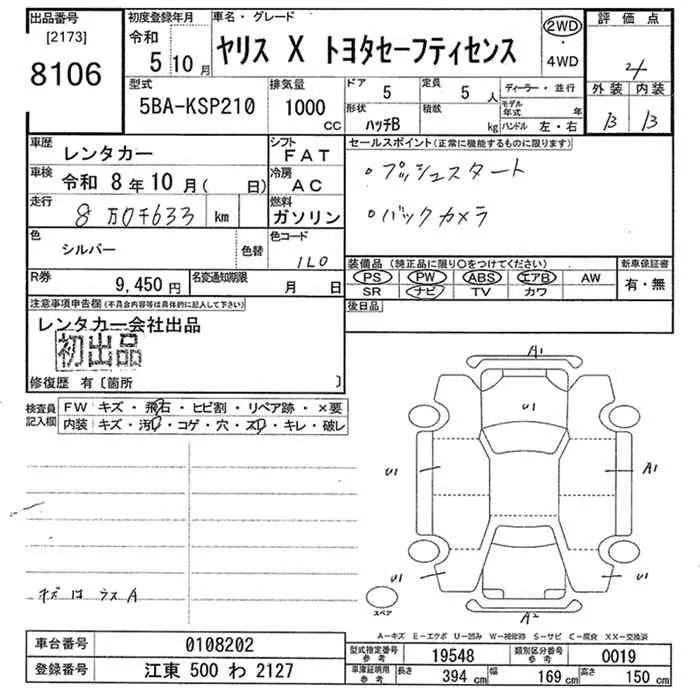 出品番号
[2173]
8106
初度登録年月
令和
5 10月
車名・グレード
ヤリス X トヨタセーフティセンス
2WD
・
4WD
評価点
4
外装 内装
B B
型式
5BA-KSP210
排気量
1000
CC
ドア
5
定員
5 人
形状
ハッチB
積載
kg
ディーラー・並行
モデル年式 年
ハンドル 左・右
車歴
レンタカー
シフト
FAT
車検
令和 8年 10月 ( 日)
冷房
AC
走行
8万0千633 km
燃料
ガソリン
色
シルバー
色替
色コード
1L0
R券
9,450円
名変通知期限
月 日
セールスポイント(正常に機能するものに限ります)
・プッシュスタート
・バックカメラ
装備品(純正品に限り○をつけてください)
PS PW ABS エアB AW
SR ナビ TV カワ
新車保証書
有・無
後日品
注意事項申告欄(不具合内容等は具体的に記入して下さい)
レンタカー会社出品
初出品
修復歴 有〔箇所 〕
検査員記入欄
FW キズ・飛石・ヒビ割・リペア跡・×要
内装 キズ・汚れ・コゲ・穴・スレ・キレ・破レ
キズ
A
A1
U1
U1
A1
U1
U1
A2
スペア
A-キズ E-エクボ U-凹み W-補修跡 S-サビ C-腐食 XX-交換済
車台番号
0108202
登録番号
江東 500 わ 2127
型式指定番号
参考
19548
類別区分番号
参考
0019
車庫証明用
参考
長さ
394 cm
幅
169 cm
高さ
150 cm